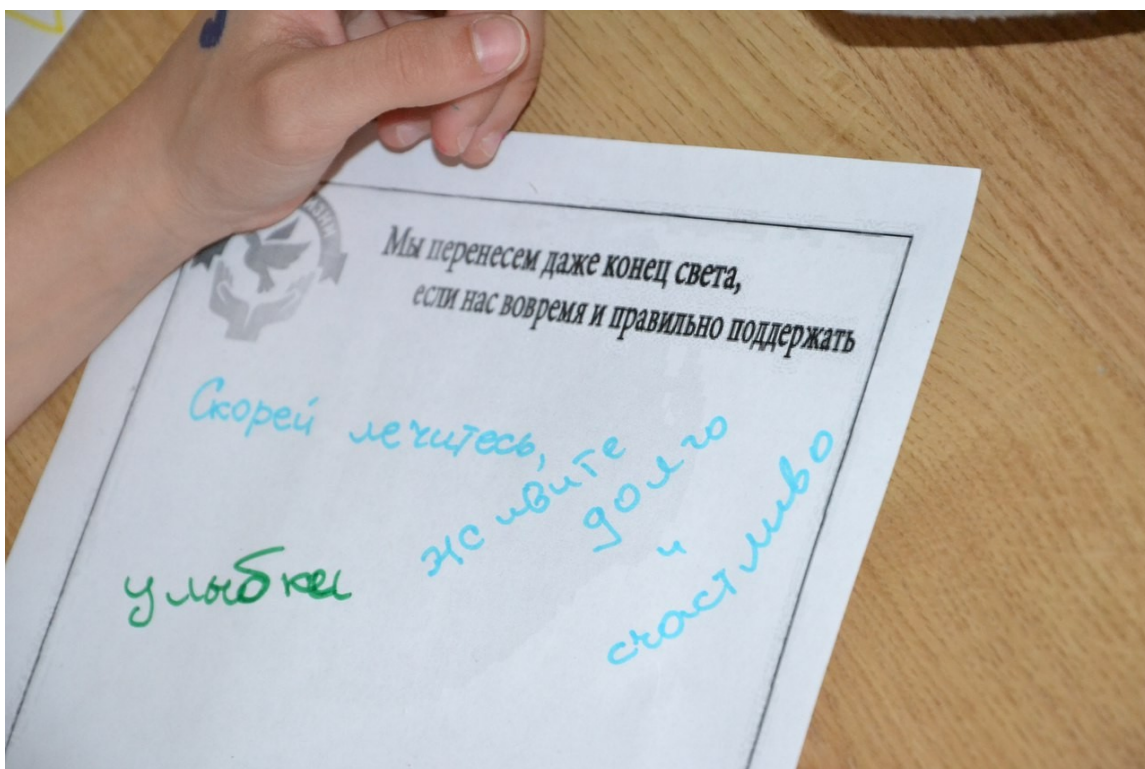 Мы перенесем даже конец света,
если нас вовремя и правильно поддержать
Скорей лечитесь,
живите
долго
и
счастливо
улыбка